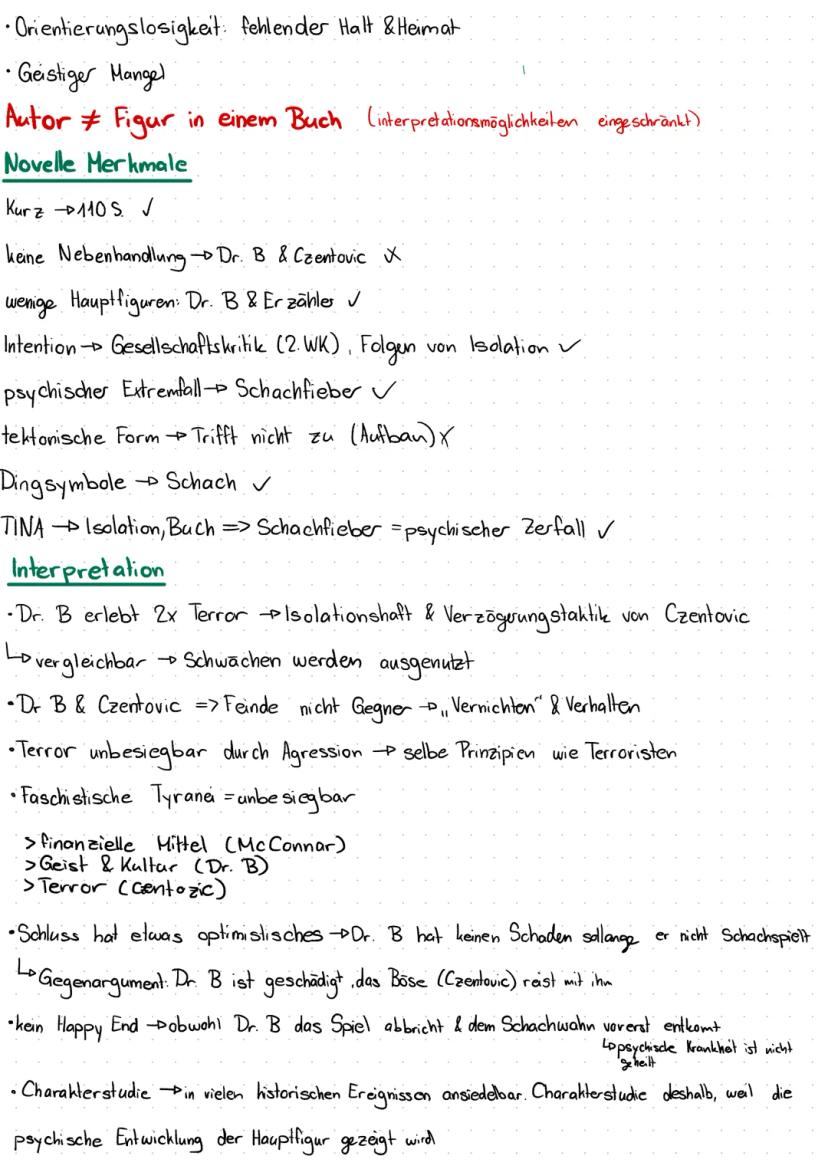 · Orientierungslosigkeit: fehlender Halt & Heimat
· Geistiger Mangel
Autor ≠ Figur in einem Buch (interpretationsmöglichkeiten eingeschränkt)
Novelle Merkmale
Kurz → 110 S. ✓
keine Nebenhandlung → Dr. B & Czentovic ✗
wenige Hauptfiguren: Dr. B & Erzähler ✓
Intention → Gesellschaftskritik (2. WK), Folgen von Isolation ✓
psychischer Extremfall → Schachfieber ✓
tektonische Form → Trifft nicht zu (Aufbau) ✗
Dingsymbole → Schach ✓
TINA → Isolation, Buch => Schachfieber = psychischer Zerfall ✓
Interpretation
· Dr. B erlebt 2x Terror → Isolationshaft & Verzögerungstaktik von Czentovic
↳ vergleichbar → Schwächen werden ausgenutzt
· Dr B & Czentovic => Feinde nicht Gegner → „Vernichten“ & Verhalten
· Terror unbesiegbar durch Agression → selbe Prinzipien wie Terroristen
· Faschistische Tyranei = unbesiegbar
> finanzielle Mittel (McConnar)
> Geist & Kultur (Dr. B)
> Terror (Centozic)
· Schluss hat etwas optimistisches → Dr. B hat keinen Schaden sollange er nicht Schachspielt
↳ Gegenargument: Dr. B ist geschädigt, das Böse (Czentovic) reist mit ihm
· kein Happy End → obwohl Dr. B das Spiel abbricht & dem Schachwahn vorerst entkomt
↳ psychische Krankheit ist nicht
geheilt
· Charakterstudie → in vielen historischen Ereignissen ansiedelbar. Charakterstudie deshalb, weil die
psychische Entwicklung der Hauptfigur gezeigt wird